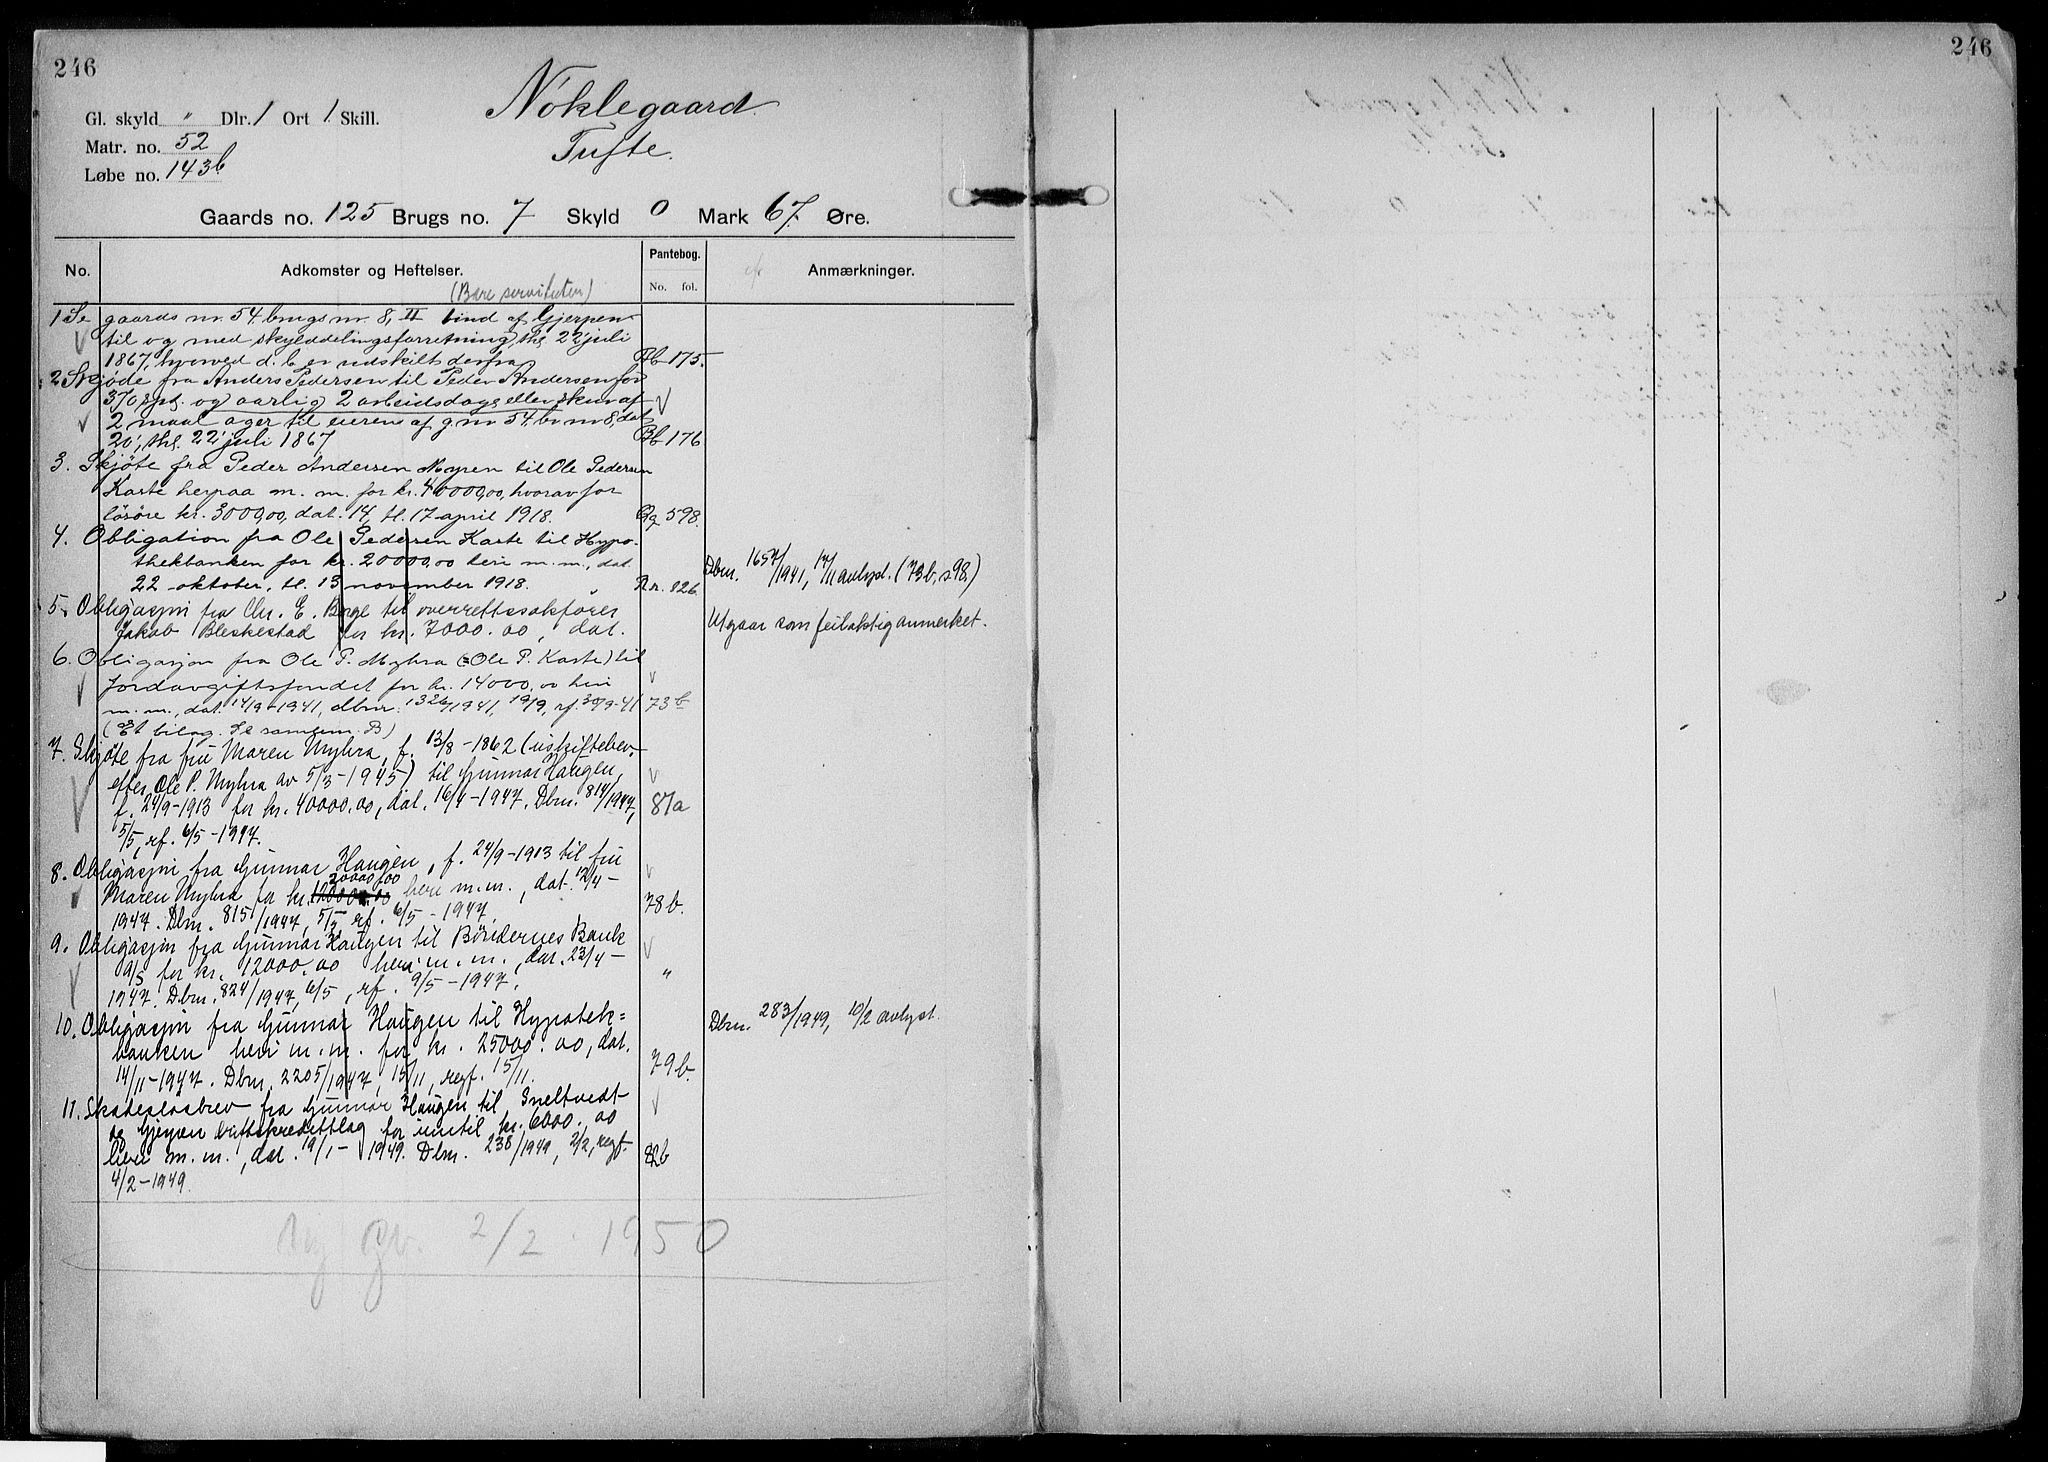 246
246
Nøklegaard
Tufte.
Gl. skyld " Dlr. 1 Ort 1 Skill.
Matr. no. 52
Løbe no. 143b
Gaards no. 125 Brugs no. 7 Skyld 0 Mark 67 Øre.
No. Adkomster og Heftelser. Pantebog. No. fol. Anmærkninger.
(Bare servituten)
1 Se gaards nr. 54 brugs nr. 8, II bind af Gjerpen
til og med skylddelingsforretning, thl. 22 juli
1867, hvorved d. b. er udskilt derfra 175.
2 Skjøde fra Anders Pedersen til Peder Andersen for
370 spd. og aarlig 2 arbeidsdage eller skur af
2 maal ager til eieren af g. nr 54, br nr 8, dat
20, thl. 22 juli 1867 Bb 176
3. Skjøte fra Peder Andersen Myren til Ole Pedersen
Kaste herpaa m. m. for kr. 40000,00, hvorav for
løsøre kr. 3000,00, dat. 14, tl. 17 april 1918. 598.
4. Obligation fra Ole Pedersen Kaste til Hypo-
thekbanken for kr. 20000,00 heri m. m., dat
22 oktober, tl. 13 november 1918. Nr. 826.
Dbnr. 1657/1941, 17/11 avlyst. (73b, s 98.)
5. Obligasjon fra Chr. E. Borge til overrettssakfører
Jakob Bleskestad for kr. 7000.00, dat.
Utgaar som feilaktig anmerket.
6. Obligasjon fra Ole P. Myhra (= Ole P. Kaste) til
Jordavgiftsfondet for kr. 14000,00 heri
m. m., dat. 14/9-1941, dbnr. 1326/1941, 19/9, rf. 30/9-41 73b
(Et bilag. Se samlem. B)
7. Skjøte fra fru Maren Myhra, f. 13/8-1862 (uskiftebev.
efter Ole P. Myhra av 5/3-1945) til Gunnar Haugen,
f. 24/9-1913 for kr. 40000.00, dat. 16/4-1947. Dbnr. 814/1947, 81a
5/5, rf. 6/5-1947.
8. Obligasjon fra Gunnar Haugen, f. 24/9-1913 til fru
20000,00
Maren Myhra for kr. 12000.00 heri m.m., dat. 12/4-
1947. Dbnr. 815/1947, 5/5, rf. 6/5-1947. 78b.
9. Obligasjon fra Gunnar Haugen til Bøndernes Bank
9/5 for kr. 12000.00 heri m.m., dat. 23/4-
1947. Dbnr. 824/1947, 6/5, rf. 9/5-1947. "
10. Obligasjon fra Gunnar Haugen til Hypotek=
banken heri m.m. for kr. 25000.00, dat.
14/11-1947. Dbnr. 2205/1947, 15/11, regf. 15/11. 79b.
Dbnr. 283/1949, 10/2 avlyst.
11. Skadesløsbrev fra Gunnar Haugen til Sneltvedt
og Gjerpen driftskredittlag for inntil kr. 6000.00
heri m.m., dat. 19/1-1949. Dbnr. 238/1949, 2/2, regf. 82b
4/2-1949.
Ny gb. 2/2. 1950